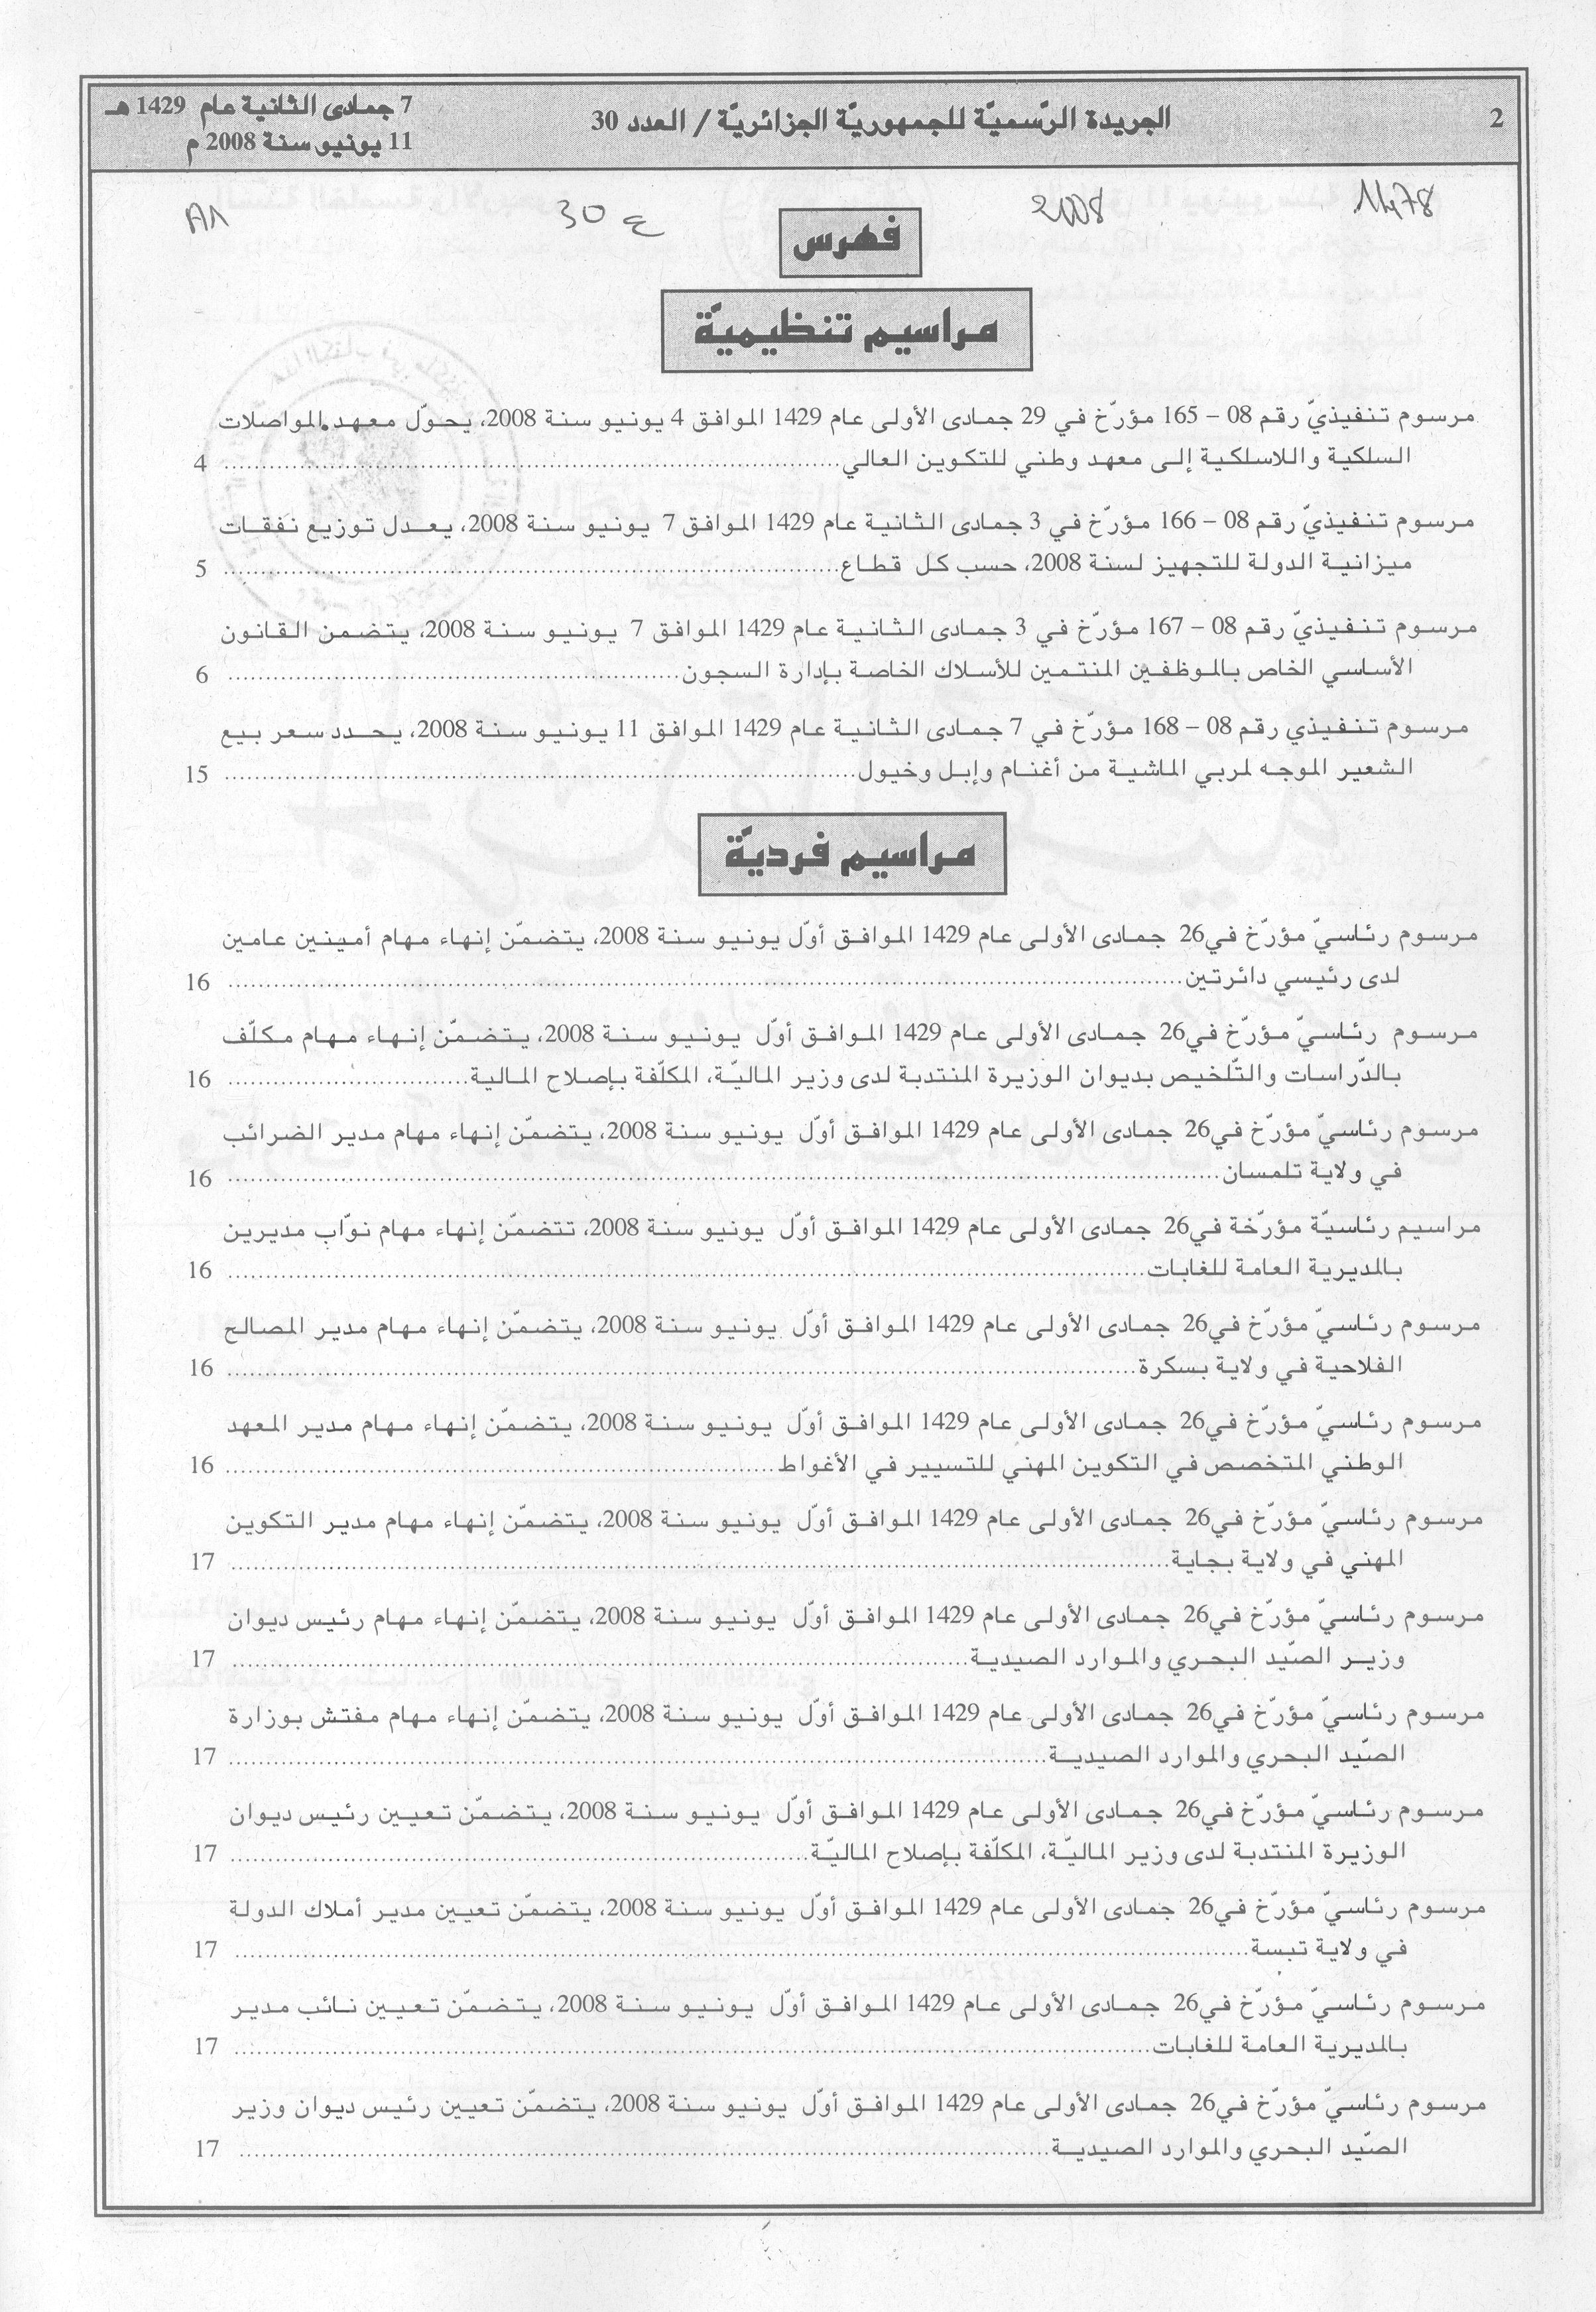 2
الجريدة الرّسميّة للجمهوريّة الجزائريّة / العدد 30
7 جمادى الثانية عام 1429 هـ
11 يونيو سنة 2008 م
1478
2008
30 ع
A1
فهرس
مراسيم تنظيميّة
مرسوم تنفيذيّ رقم 08 – 165 مؤرّخ في 29 جمادى الأولى عام 1429 الموافق 4 يونيو سنة 2008، يحوّل معهد المواصلات
السلكية واللاسلكية إلى معهد وطني للتكوين العالي........ 4
مرسوم تنفيذيّ رقم 08 – 166 مؤرّخ في 3 جمادى الثانية عام 1429 الموافق 7 يونيو سنة 2008، يعدل توزيع نفقات
ميزانية الدولة للتجهيز لسنة 2008، حسب كل قطاع........ 5
مرسوم تنفيذيّ رقم 08 – 167 مؤرّخ في 3 جمادى الثانية عام 1429 الموافق 7 يونيو سنة 2008، يتضمن القانون
الأساسي الخاص بالموظفين المنتمين للأسلاك الخاصة بإدارة السجون........ 6
مرسوم تنفيذي رقم 08 – 168 مؤرّخ في 7 جمادى الثانية عام 1429 الموافق 11 يونيو سنة 2008، يحدد سعر بيع
الشعير الموجه لمربي الماشية من أغنام وإبل وخيول........ 15
مراسيم فرديّة
مرسوم رئاسيّ مؤرّخ في26 جمادى الأولى عام 1429 الموافق أوّل يونيو سنة 2008، يتضمّن إنهاء مهام أمينين عامين
لدى رئيسي دائرتين........ 16
مرسوم رئاسيّ مؤرّخ في26 جمادى الأولى عام 1429 الموافق أوّل يونيو سنة 2008، يتضمّن إنهاء مهام مكلّف
بالدّراسات والتّلخيص بديوان الوزيرة المنتدبة لدى وزير الماليّة، المكلّفة بإصلاح المالية........ 16
مرسوم رئاسيّ مؤرّخ في26 جمادى الأولى عام 1429 الموافق أوّل يونيو سنة 2008، يتضمّن إنهاء مهام مدير الضرائب
في ولاية تلمسان........ 16
مراسيم رئاسيّة مؤرّخة في26 جمادى الأولى عام 1429 الموافق أوّل يونيو سنة 2008، تتضمّن إنهاء مهام نوّاب مديرين
بالمديرية العامة للغابات........ 16
مرسوم رئاسيّ مؤرّخ في26 جمادى الأولى عام 1429 الموافق أوّل يونيو سنة 2008، يتضمّن إنهاء مهام مدير المصالح
الفلاحية في ولاية بسكرة........ 16
مرسوم رئاسيّ مؤرّخ في26 جمادى الأولى عام 1429 الموافق أوّل يونيو سنة 2008، يتضمّن إنهاء مهام مدير المعهد
الوطني المتخصص في التكوين المهني للتسيير في الأغواط........ 16
مرسوم رئاسيّ مؤرّخ في26 جمادى الأولى عام 1429 الموافق أوّل يونيو سنة 2008، يتضمّن إنهاء مهام مدير التكوين
المهني في ولاية بجاية........ 17
مرسوم رئاسيّ مؤرّخ في26 جمادى الأولى عام 1429 الموافق أوّل يونيو سنة 2008، يتضمّن إنهاء مهام رئيس ديوان
وزير الصّيد البحري والموارد الصيدية........ 17
مرسوم رئاسيّ مؤرّخ في26 جمادى الأولى عام 1429 الموافق أوّل يونيو سنة 2008، يتضمّن إنهاء مهام مفتش بوزارة
الصّيد البحري والموارد الصيدية........ 17
مرسوم رئاسيّ مؤرّخ في26 جمادى الأولى عام 1429 الموافق أوّل يونيو سنة 2008، يتضمّن تعيين رئيس ديوان
الوزيرة المنتدبة لدى وزير الماليّة، المكلّفة بإصلاح الماليّة........ 17
مرسوم رئاسيّ مؤرّخ في26 جمادى الأولى عام 1429 الموافق أوّل يونيو سنة 2008، يتضمّن تعيين مدير أملاك الدولة
في ولاية تبسة........ 17
مرسوم رئاسيّ مؤرّخ في26 جمادى الأولى عام 1429 الموافق أوّل يونيو سنة 2008، يتضمّن تعيين نائب مدير
بالمديرية العامة للغابات........ 17
مرسوم رئاسيّ مؤرّخ في26 جمادى الأولى عام 1429 الموافق أوّل يونيو سنة 2008، يتضمّن تعيين رئيس ديوان وزير
الصّيد البحري والموارد الصيدية........ 17